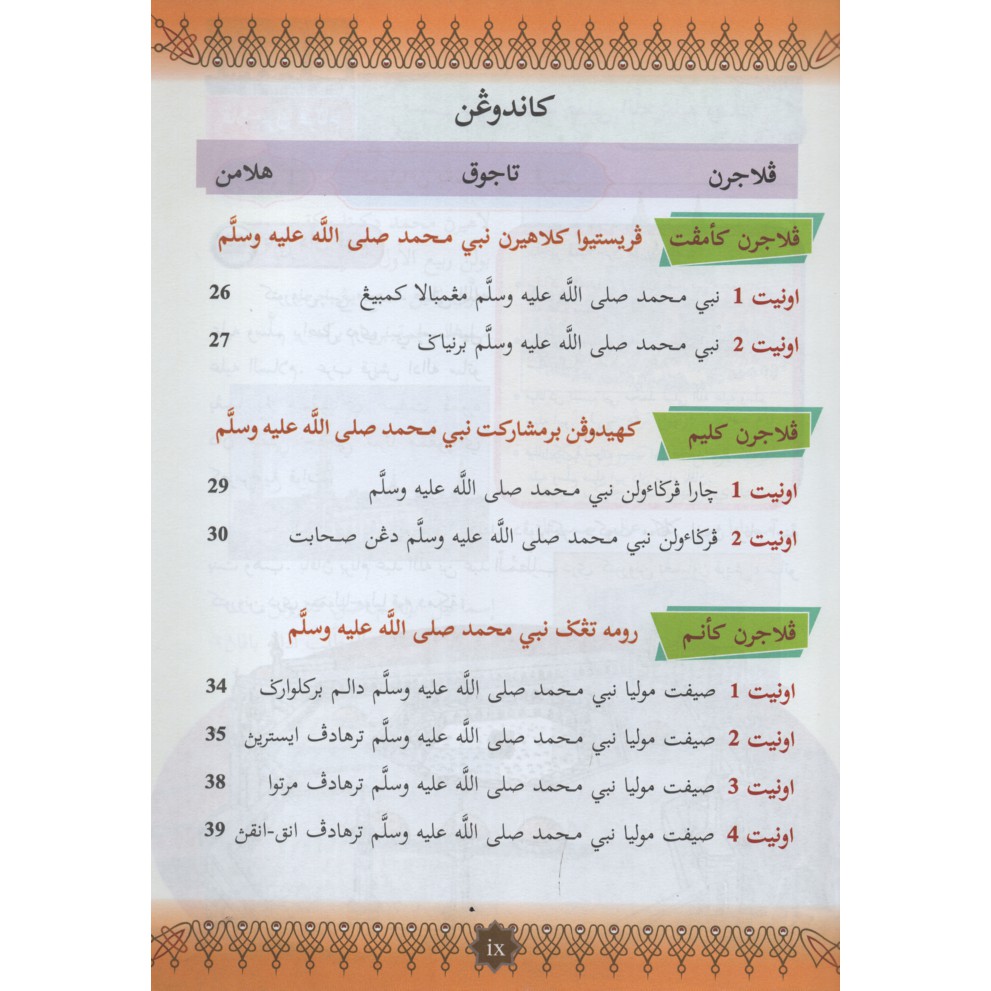 کاندوڠن
ڤلاجرن تاجوق هلامن
ڤلاجرن کأمڤت ڤريستيوا کلاهيرن نبي محمد صلى اللَّه عليه وسلَّم
اونيت 1 نبي محمد صلى اللَّه عليه وسلَّم مڠمبالا کمبيڠ 26
اونيت 2 نبي محمد صلى اللَّه عليه وسلَّم برنياݢ 27
ڤلاجرن کليم کهيدوڤن برمشارکت نبي محمد صلى اللَّه عليه وسلَّم
اونيت 1 چارا ڤرݢاءولن نبي محمد صلى اللَّه عليه وسلَّم 29
اونيت 2 ڤرݢاءولن نبي محمد صلى اللَّه عليه وسلَّم دڠن صحابت 30
ڤلاجرن کأنم رومه تڠݢ نبي محمد صلى اللَّه عليه وسلَّم
اونيت 1 صيفت موليا نبي محمد صلى اللَّه عليه وسلَّم دالم برکلوارݢ 34
اونيت 2 صيفت موليا نبي محمد صلى اللَّه عليه وسلَّم ترهادڤ ايسترين 35
اونيت 3 صيفت موليا نبي محمد صلى اللَّه عليه وسلَّم ترهادڤ مرتوا 38
اونيت 4 صيفت موليا نبي محمد صلى اللَّه عليه وسلَّم ترهادڤ انق-انقڽ 39
ix